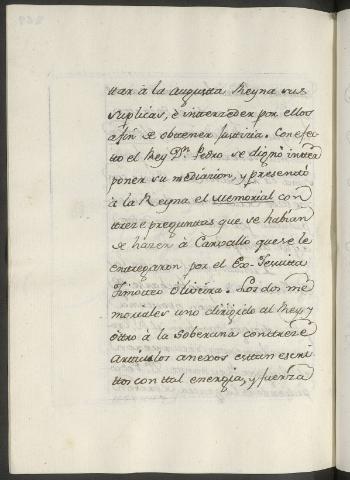 ttar à la augusta Reyna sus
suplicas, è interzeder por ellos
afin de obtener Justizia. Con efec-
to el Rey Dn. Pedro se dignò inter
poner su mediazion, y presentò
à la Reyna el Memorial con
treze preguntas que se habian
de hazer à Carvallo que se le
entregaron por el Ex-Jesuita
Timoteo Oliveira. Los dos me
moriales uno dirigido al Rey, y
otro à la Soberana con treze
Articulos anexos estan escri
tos con tal energia, y fuerza